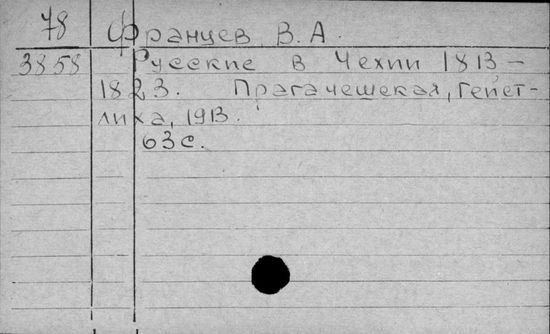 78 Францев, В. А.
3858 Русские в Чехии 1813-
1823. Прагачешская, Гейст-
лиха, 1913.
63с.